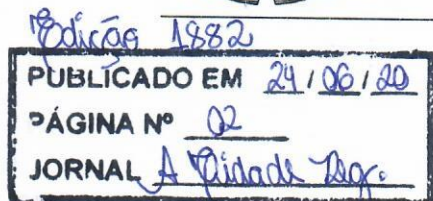 Edição 1882
PUBLICADO EM 24/06/20
PÁGINA Nº 02
JORNAL A Cidade Reg.